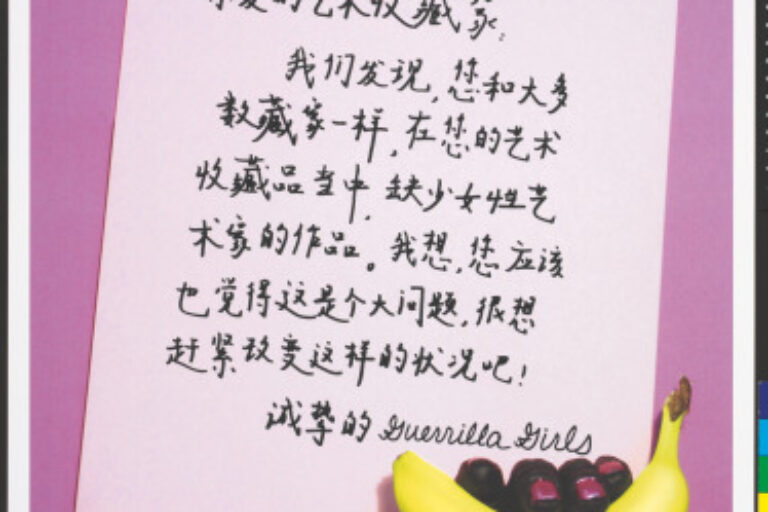 亲爱的艺术收藏家:
我们发现,您和大多
数藏家一样,在您的艺术
收藏品当中,缺少女性艺
术家的作品。我想,您应该
也觉得这是个大问题,很想
赶紧改变这样的状况吧!
诚挚的 Guerrilla Girls